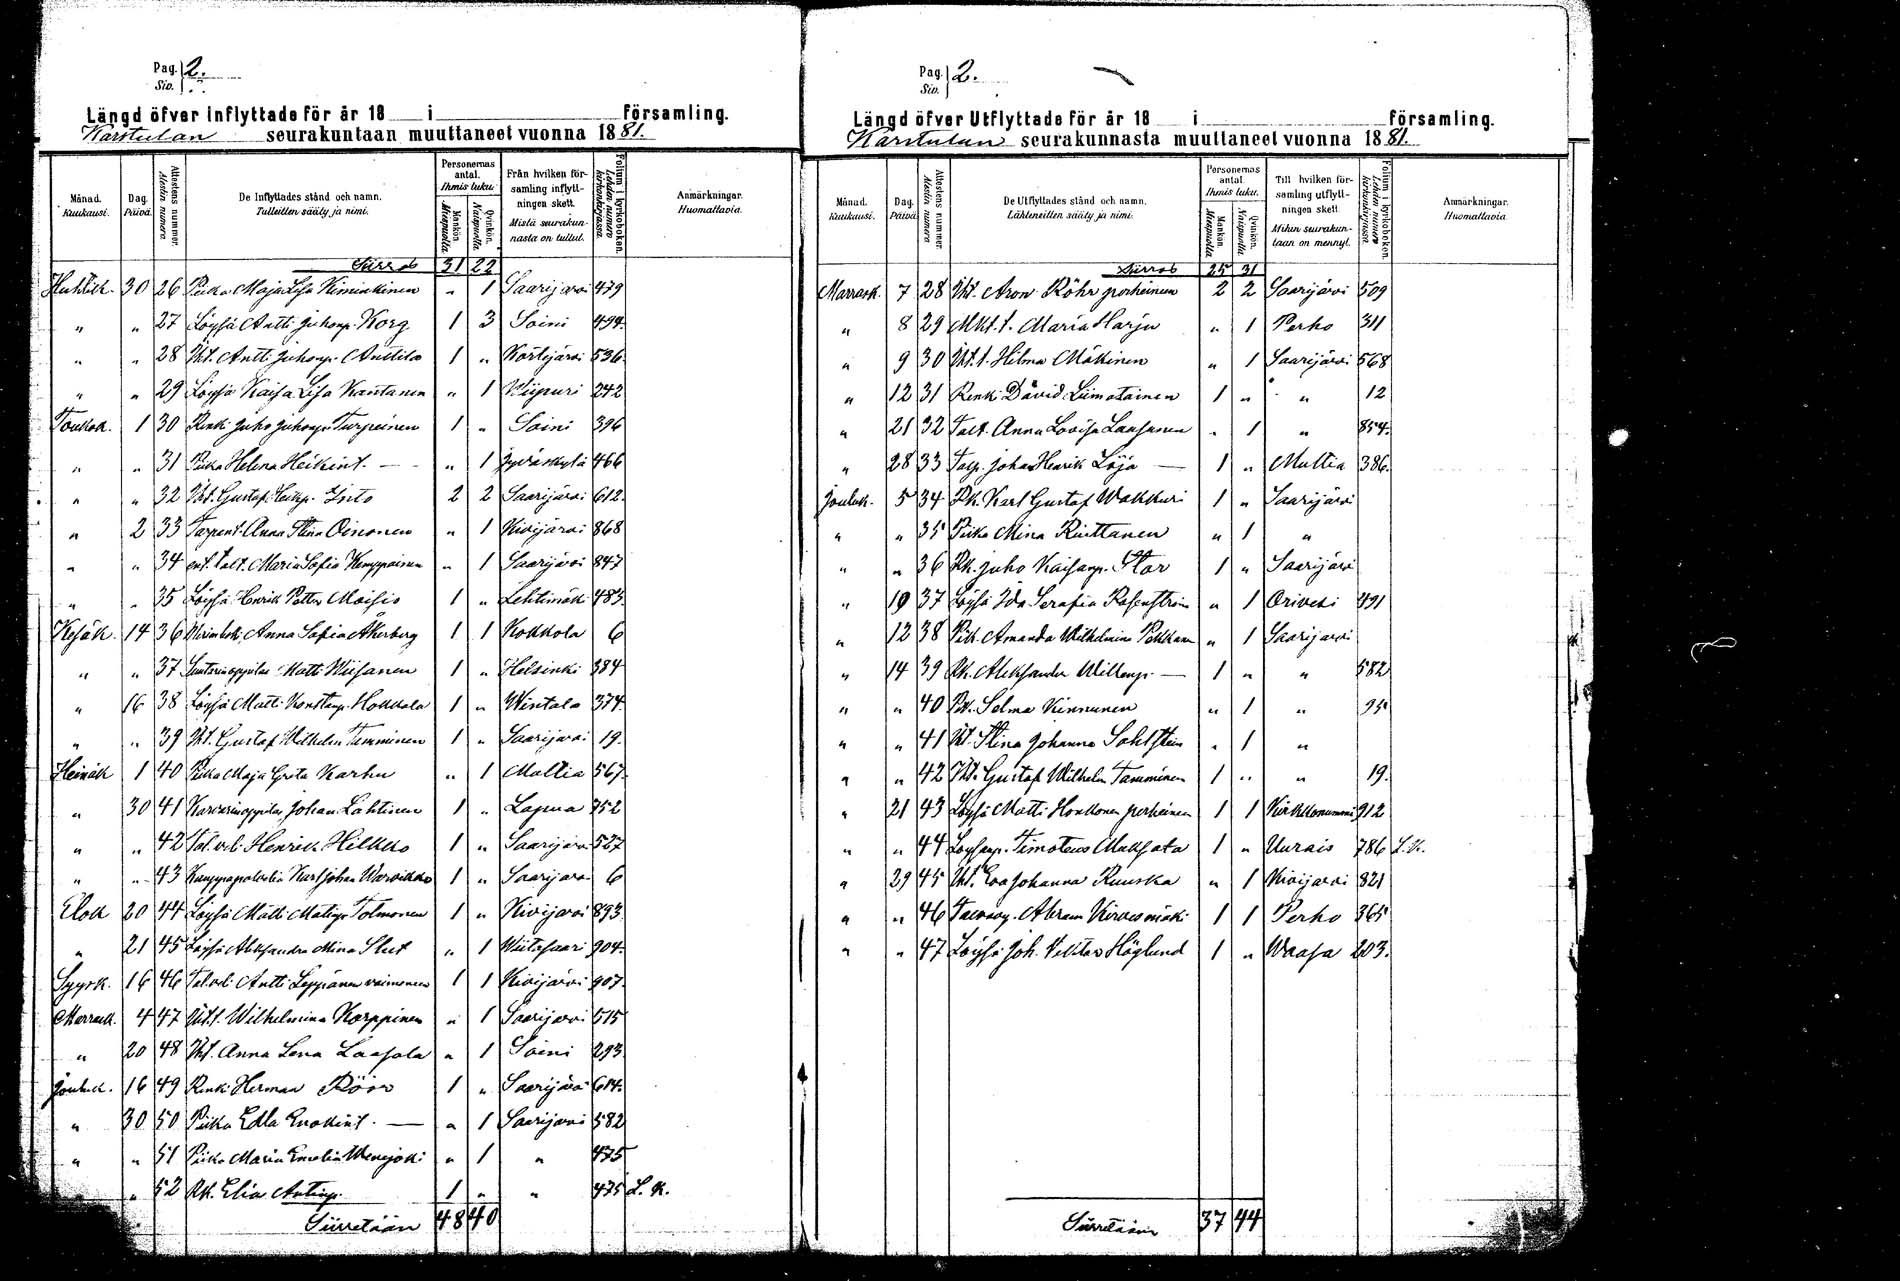 Pag. 2.
Siv.
Längd öfver Inflyttade för år 18 i Församling.
Karstulan seurakuntaan muuttaneet vuonna 1881.
Månad. Kuukausi. Dag. Päivä. Attestens nummer. Alestin numero De Inflyttades stånd och namn. Tulleitten sääty ja nimi. Personernas antal. Ihmis luku. Mankön. Miespuolia Qvinkön. Naispuolia Från hvilken församling inflyttningen skett. Mistä seurakunnasta on tullut. Folium i kyrkoboken. Lehden numero kirkonkirjassa Anmärkningar. Huomattavia.
Siirros 31 22
Huhtik. 30 26 Piika Maja Lisa Kiminkinen " 1 Saarijärvi 479
" " 27 Löysä Antti Juhonp. Korg 1 3 Soini 494
" " 28 Itk. Antti Juhonp. Anttila 1 " 536
" " 29 Löysä Kaisa Lisa Kantanen " 1 Wiipuri 242
Toukok. 1 30 Renki Juho Juhonp. Turpeinen 1 " Soini 396
" " 31 Piika Helena Heikint. — " 1 Jyväskylä 466
" " 32 Itk. Gustaf Heikp. Into 2 2 Saarijärvi 612
" 2 33 Anna Stina Oinonen " 1 Kivijärvi 868
" " 34 ent. talt. Maria Sofia Kemppainen " 1 Saarijärvi 847
" " 35 Löysä Henrik Petter Moisio 1 " Lehtimäki 483
Kesäk. 14 36 Anna Sofia Åkerberg 1 1 Kokkola 6
" " 37 Matti Wiisanen 1 " Helsinki 384
" 16 38 Löysä Matti Konstanp. Hokkala 1 " Wintala 374
" " 39 Itk. Gustaf Wilhelm Tamminen 1 " Saarijärvi 19.
Heinäk 1 40 Piika Maja Greta Karhu " 1 Multia 567
" 30 41 Karvarinoppilas Johan Lahtinen 1 " Lapua 752
" " 42 Tal.vh. Henrik Hilkko 1 " Saarijärvi 527
" " 43 Kauppapalvelia Karl Johan Warvikko 1 " Saarijärvi 6
Elok 20 44 Löysä Matti Matinp. Tolmonen 1 " Kivijärvi 893
" 21 45 Löysä Aleksandra Mina Slut " 1 Wiitasaari 904
Syysk. 16 46 Tal.vh. Antti Leppänen vaimoneen 1 1 Kivijärvi 907
Marrask. 4 47 Itk.t. Wilhelmina Karppinen " 1 Saarijärvi 515
" 20 48 Itk. Anna Lena Laasola " 1 Soini 293
Jouluk. 16 49 Renki Herman Röör 1 " Saarijärvi 614
" 30 50 Piika Edla Enokint. — " 1 Saarijärvi 582
" " 51 Piika Maria Emelia Wenejoki " 1 " 475
" 52 Rk. Elia Antinp. 1 " " 475 L. K.
Siirretään 48 40
Pag. 2.
Siv.
Längd öfver Utflyttade för år 18 i Församling.
Karstulan seurakunnasta muuttaneet vuonna 1881.
Månad. Kuukausi. Dag. Päivä Attestens nummer. Alestin numero De Utflyttades stånd och namn. Lähteneitten sääty ja nimi. Personernas antal. Ihmis luku. Mankön. Miespuolia Qvinkön. Naispuolia Till hvilken församling utflyttningen skett. Mihin seurakuntaan on mennyt. Folium i kyrkoboken. Lehden numero kirkonkirjassa Anmärkningar. Huomattavia.
Siirros 25 31
Marrask. 7 28 Itk. Aron Röhr perheineen 2 2 Saarijärvi 509
" 8 29 Mkt.t. Maria Harju " 1 Perho 311
" 9 30 Itk.t. Hilma Mäkinen " 1 Saarijärvi 568
" 12 31 Renki David Liimatainen 1 " " 12
" 21 32 Talt. Anna Lovisa Laasanen " 1 " 854.
" 28 33 Talp. Johan Henrik Löja — 1 " Multia 386.
Jouluk. 5 34 Rk. Karl Gustaf Wakkuri 1 " Saarijärvi
" " 35 Piika Mina Riuttanen " 1 "
" " 36 Rk. Juho Kaisanp. Stor 1 " Saarijärvi
" 10 37 Löysä Ida Serafia Rosenström " 1 Orivesi 491
" 12 38 Piik. Amanda Wilhelmina Pekkanen " 1 Saarijärvi
" 14 39 Rk. Aleksander Willenp. — 1 " " 582
" " 40 Pk. Selma Kinnunen " 1 " 95
" " 41 Itk. Stina Johanna Sahlsten " 1 "
" " 42 Itk. Gustaf Wilhelm Tamminen 1 " " 19.
" 21 43 Löysä Matti Honkonen perheineen 1 1 Kirkkonummi 912
" " 44 Löysänp. Timoteus Maksala 1 " Uurais 786 L.K.
" 29 45 Itk. Eva Johanna Ruuska " 1 Kivijärvi 821
" " 46 Abram Kirvesmäki 1 1 Perho 365
" " 47 Löysä Joh. Viktor Höglund 1 " Waasa 203.
Siirretään 37 44